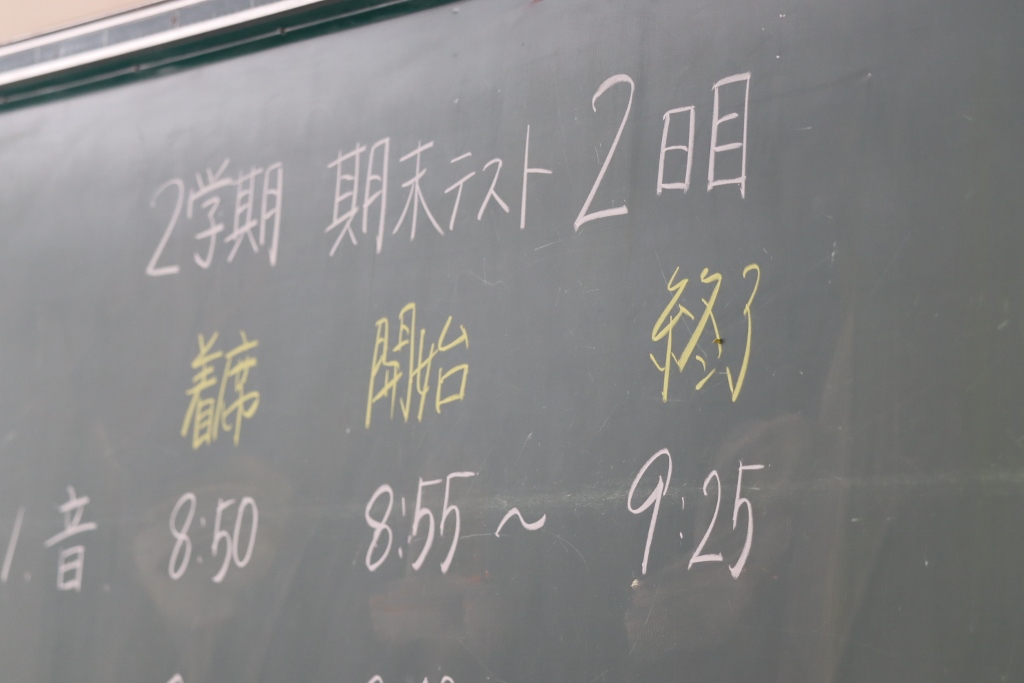 2学期 期末テスト 2日目
着席 開始 終了
1. 音 8:50 8:55 ~ 9:25